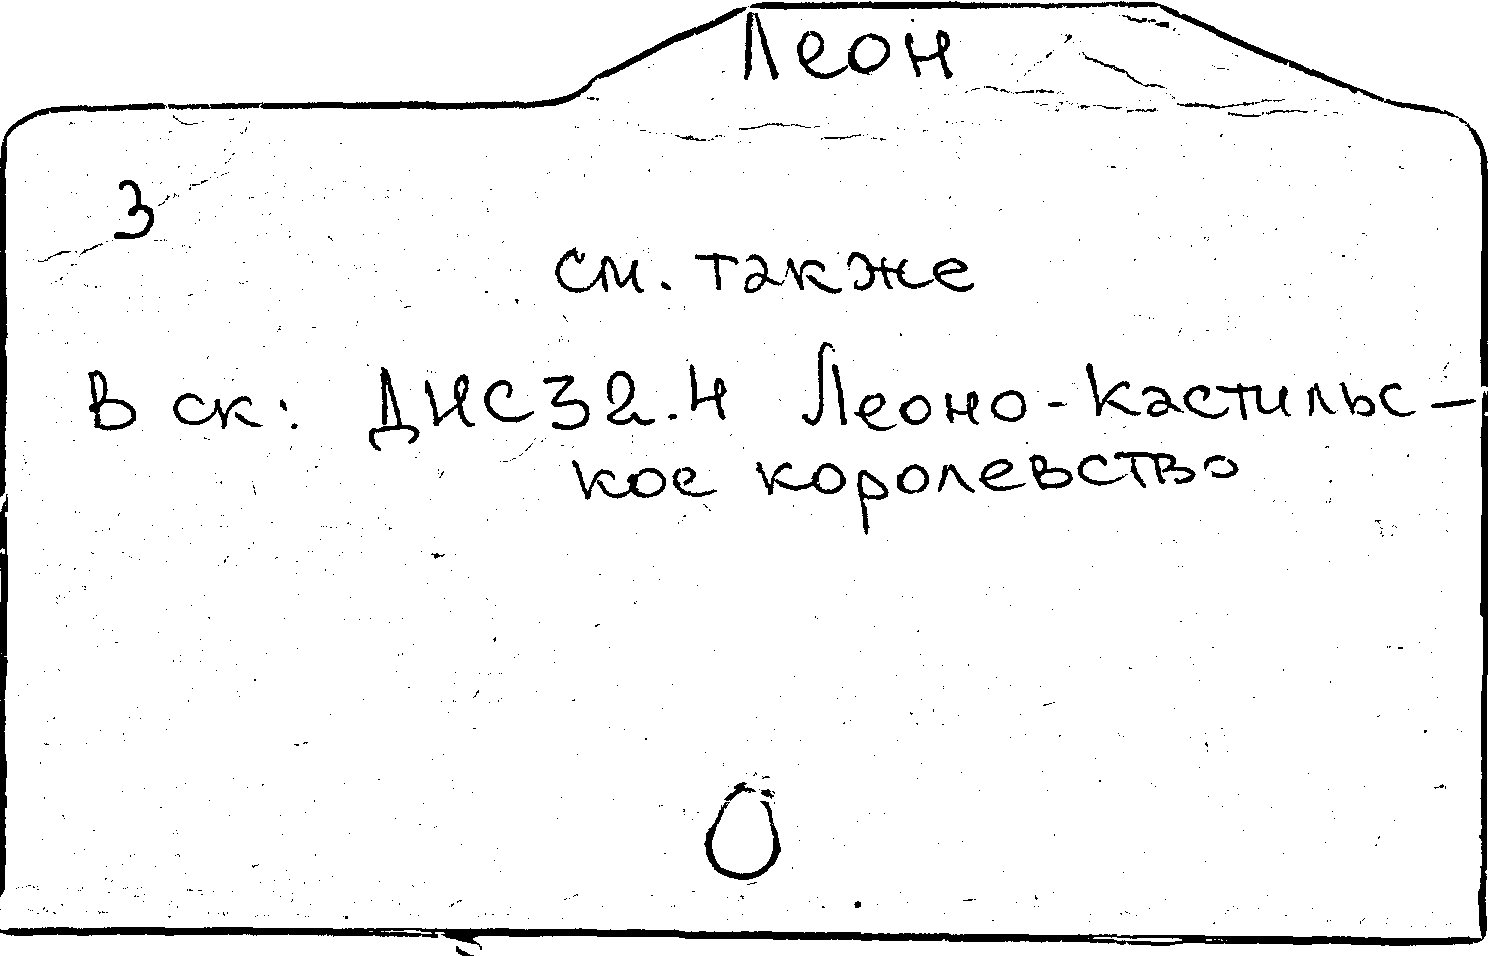 Леон
3
см. также
В ск: ДИС32.4 Леоно-Кастильс-
кое королевство